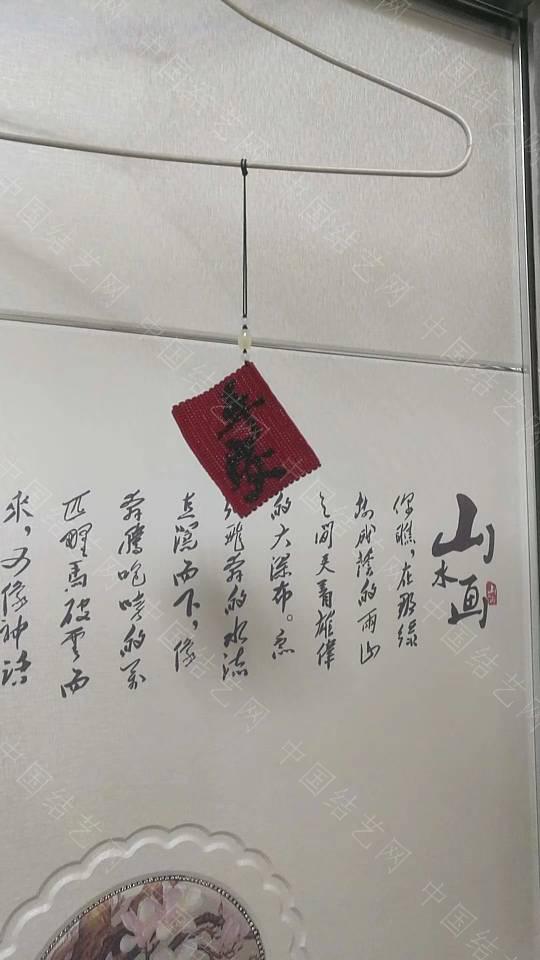 山水画
你瞧，在那绿
树成荫的两山
之间夹着雄伟
的大瀑布。
飞奔的水流
直瀉而下，像
奔腾咆哮的万
匹野馬破雲而
来，又像神话
中国结艺网